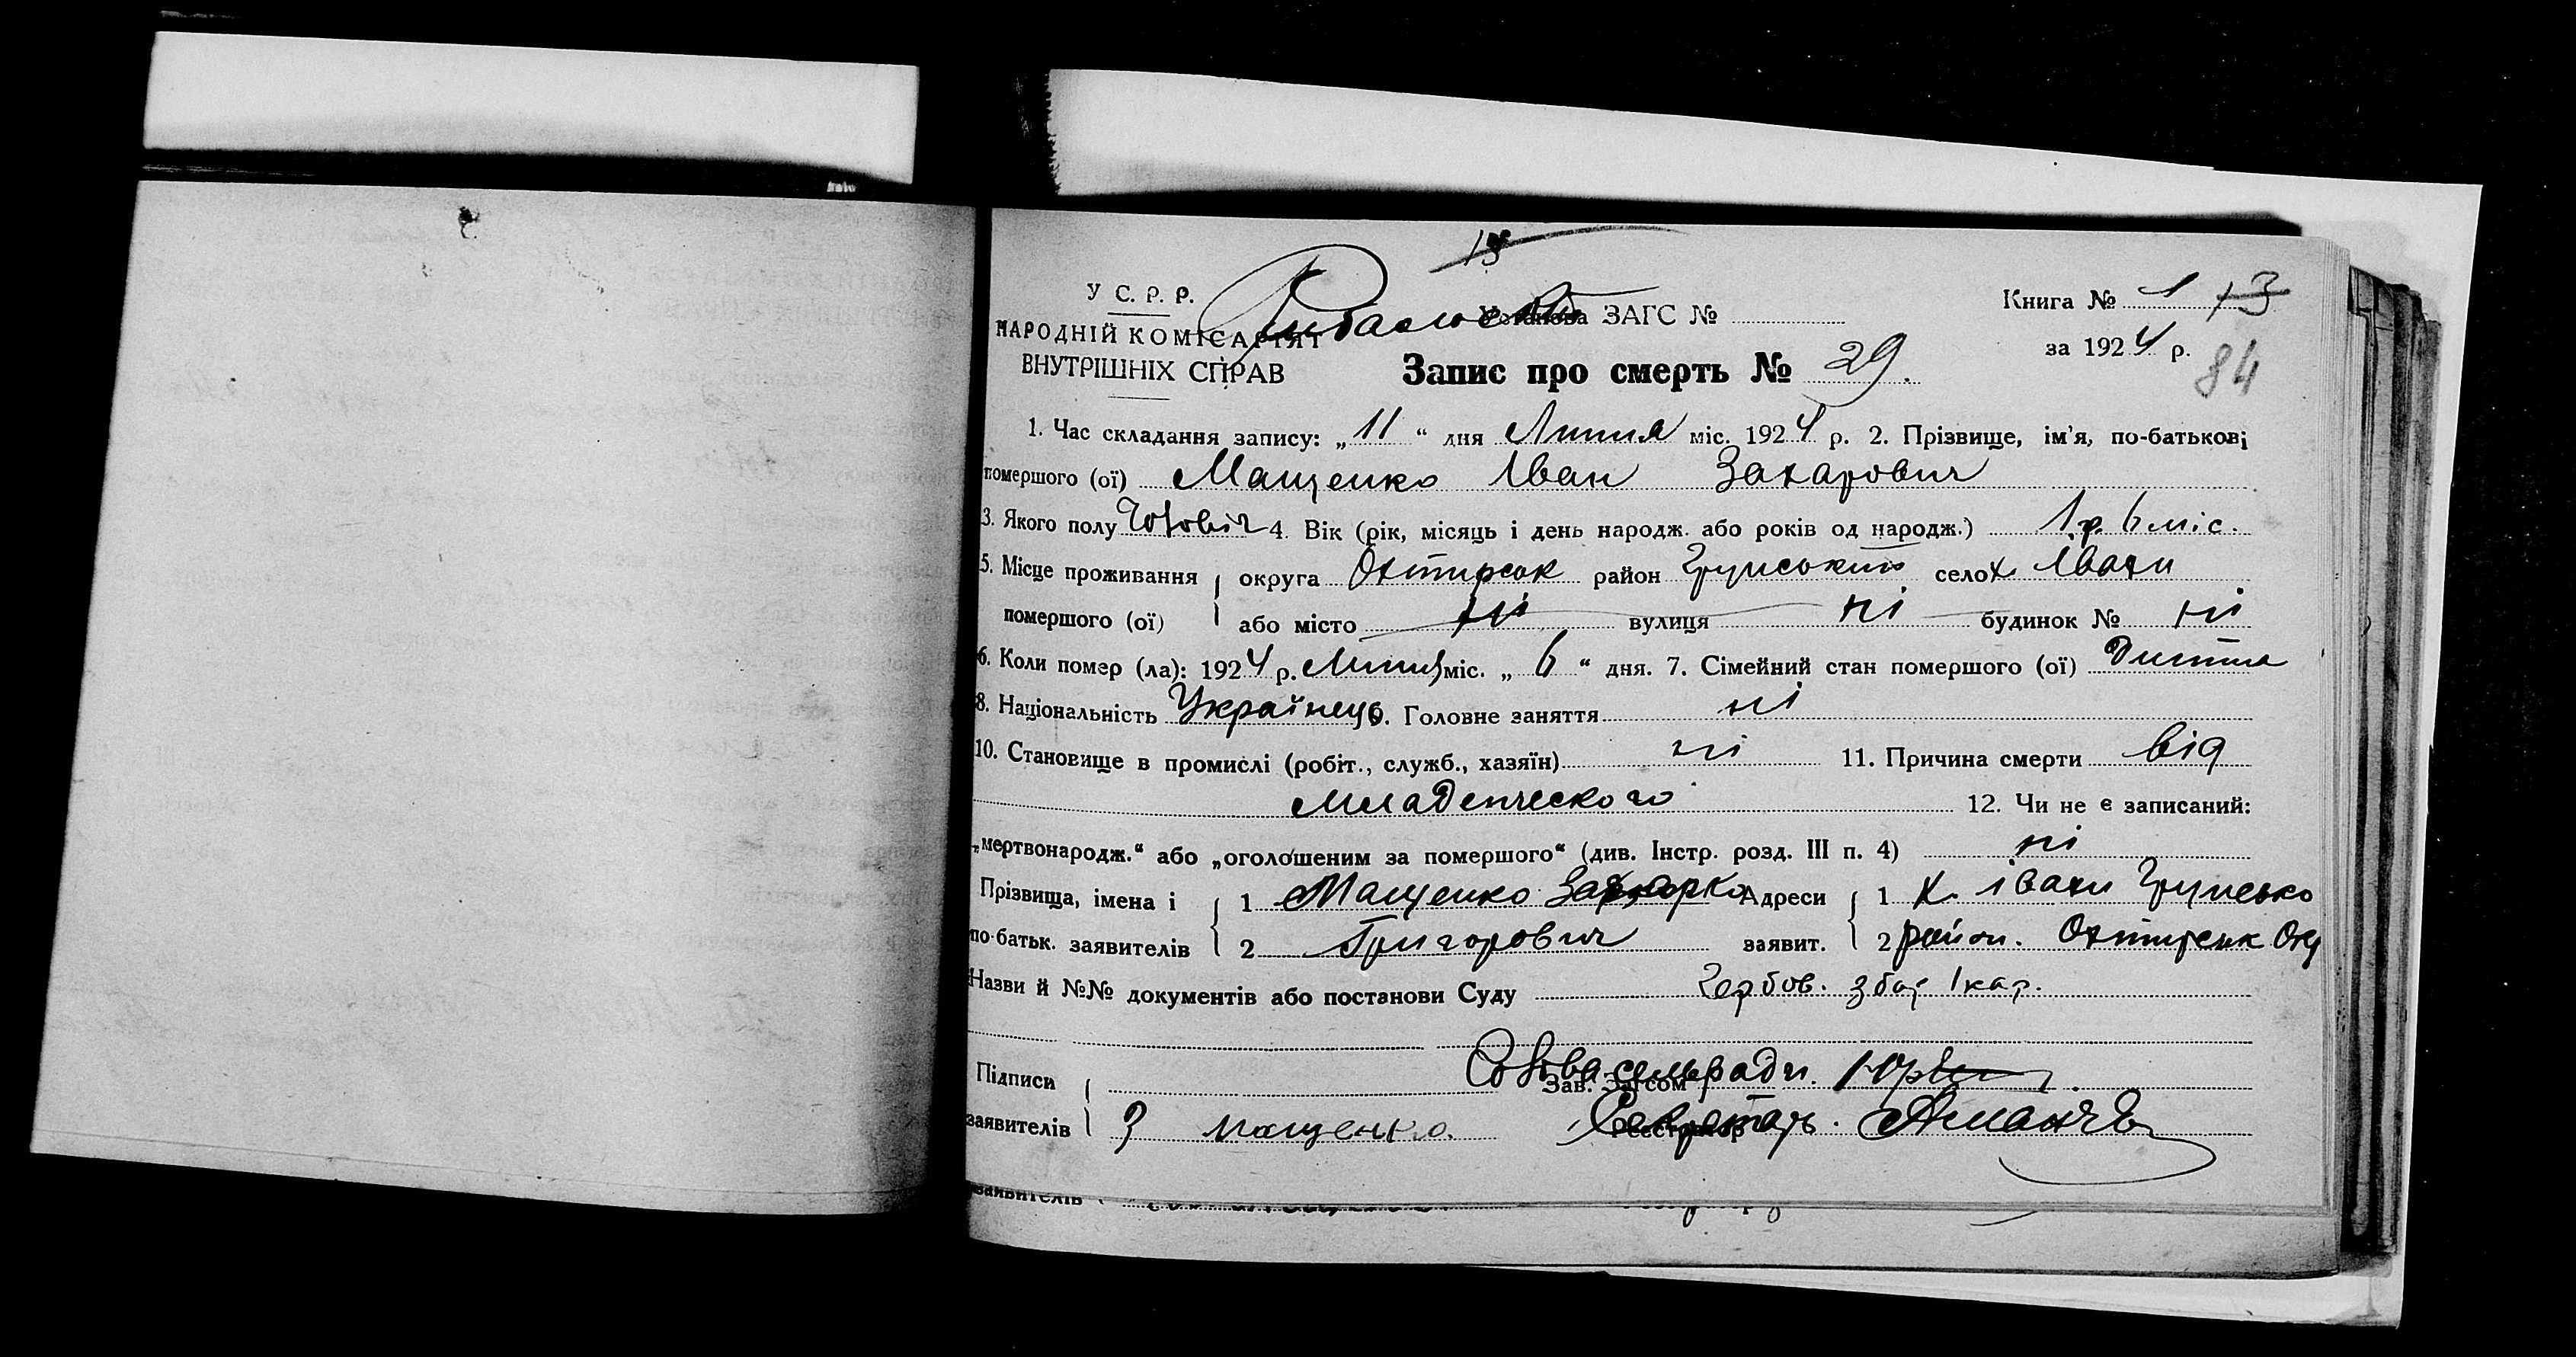 13
У С. Р. Р.
НАРОДНІЙ КОМІСАРІЯТ
ВНУТРІШНІХ СПРАВ
Установа ЗАГС №
Книга № 1 13
за 1924 р.
84
Запис про смерть № 29.
1. Час складання запису: „11“ дня Липня міс. 1924 р. 2. Прізвище, ім’я, по-батькові
помершого (ої) Мащенко Іван Захарович
3. Якого полу Чоловіч 4. Вік (рік, місяць і день народж. або років од народж.) 1 р. 6 міс.
5. Місце проживання округа Охтирськ район Грунський село х Івахи
помершого (ої) або місто ні вулиця ні будинок № ні
6. Коли помер (ла): 1924 р. Липня міс. „6“ дня. 7. Сімейний стан помершого (ої) Дитина
8. Національність Українець 9. Головне заняття ні
10. Становище в промислі (робіт., служб., хазяїн) ні 11. Причина смерти від
младенческого 12. Чи не є записаний:
„мертвонародж.“ або „оголошеним за помершого“ (див. Інстр. розд. III п. 4) ні
Прізвища, імена і 1 Мащенко Захарко Адреси 1 х. Івахи Грунсько
по-батьк. заявителів 2 Григорович заявит. 2 район. Охтирськ Окр
Назви й №№ документів або постанови Суду Гербов. збор 1 кар.
Підписи Зав. Загсом Голова сельради.
заявителів З Мащенко. Реєстратор Секретарь.
заявителів